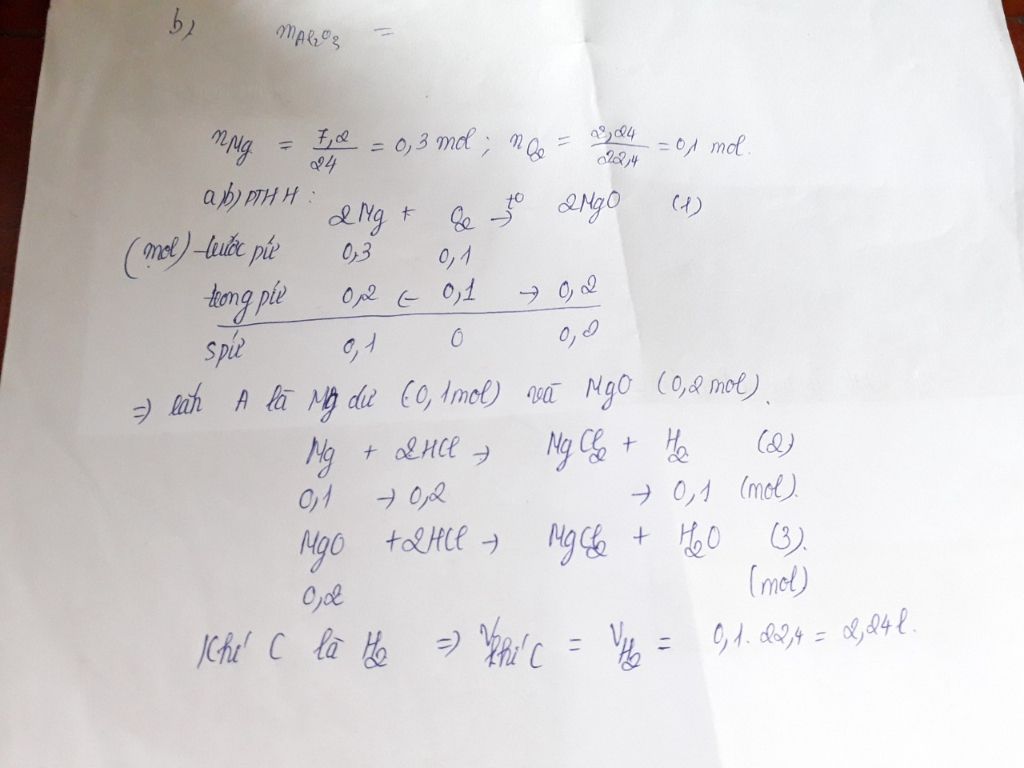 b, mAl2O3 =
nMg = 7,2/24 = 0,3 mol ; nO2 = 2,24/22,4 = 0,1 mol.
a,b) PTHH :
2Mg + O2 →t° 2MgO (1)
(mol) trước pứ 0,3 0,1
trong pứ 0,2 ← 0,1 → 0,2
spứ 0,1 0 0,2
⇒ rắn A là Mg dư (0,1mol) và MgO (0,2mol).
Mg + 2HCl → MgCl2 + H2 (2)
0,1 → 0,2 → 0,1 (mol).
MgO + 2HCl → MgCl2 + H2O (3).
0,2 (mol)
Khí C là H2 ⇒ Vkhí C = VH2 = 0,1. 22,4 = 2,24l.